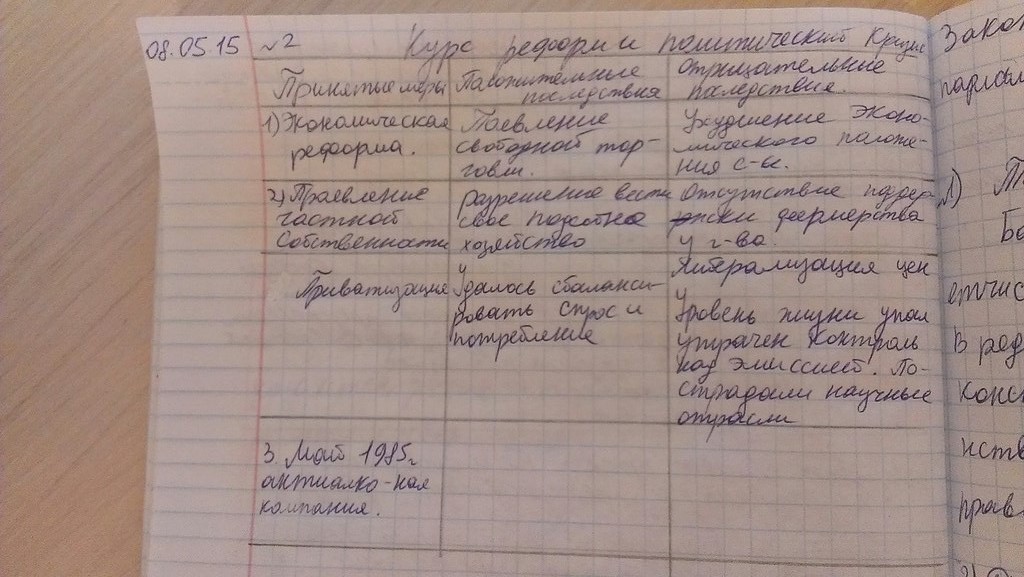 08.05.15 №2 Курс реформ и политический Кризис
Принятые меры
Положительные
последствия
отрицательные
последствие.
1) Экономическая
реформа.
Поевление
свободной тор-
говли.
Ухудшение эконо-
мического положе-
ния с-ы.
2) Праевление
частной
Собственности
разрешение вести
свое подсобное
хозяйство
Отсутствие поддер-
жки феермерства
у г-ва.
Приватизация
Удалось сбаланси-
ровать спрос и
потребление
Либерализация цен
Уровень жизни упал
утрачен контроль
над эмиссией. По-
страдали научные
отрасли
3. Май 1985г
антиалко-ная
кампания.
1)